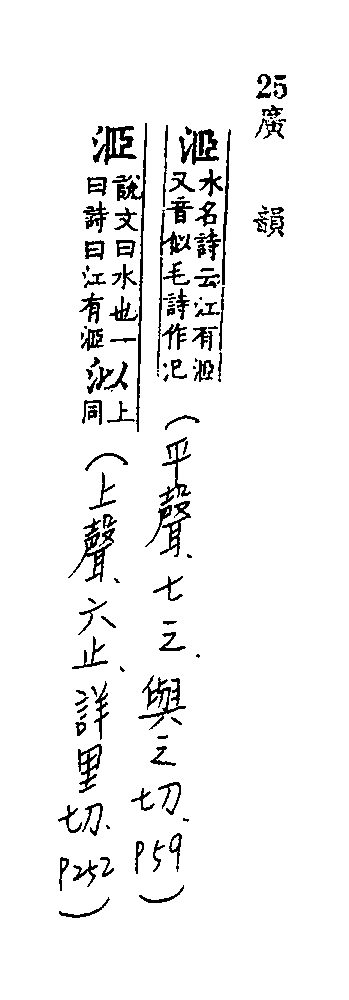 25
廣韻
洍
水名詩云江有洍
又音似毛詩作汜
(平聲、七之、與之切、P59)
洍
說文曰水也一
曰詩曰江有洍
上
同
(上聲、六止、詳里切、P252)